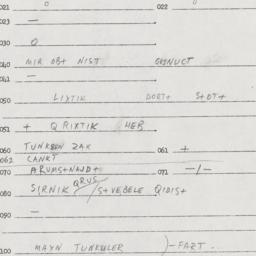 021 o 022 o
023 —
030 o
040 MIR OBT NIST GKNUCT
041 —
050 LIXTIK DOET+ S+DT+
051 + QRIXTIK HEB
060 TUNKBEN ZAK 061 +
062 CANKT
070 ARUMS+NAJD+ 071 -/-
080 SIRNIK QRUS/S+VEBELE QIDIS+
090 —
100 MAYN TUNKELER )-FAZT.